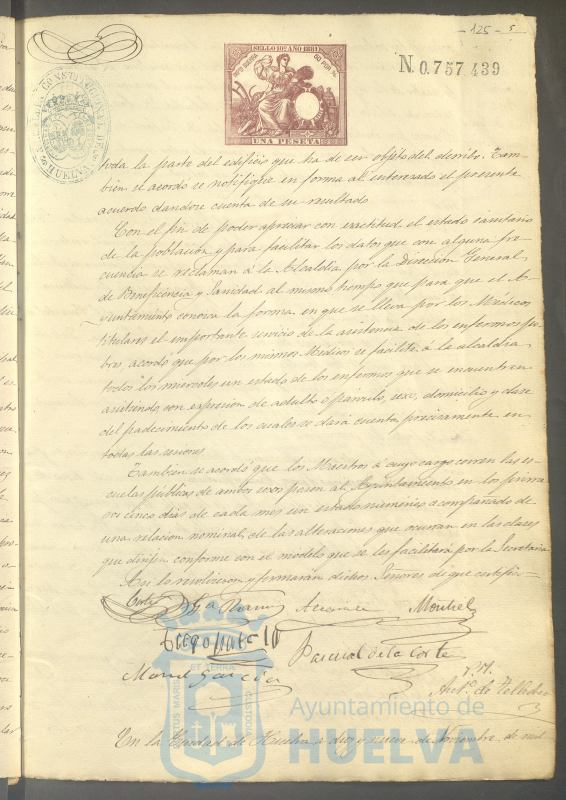 -125- 5
SELLO 10º AÑO 1881
N.0.757.439
UNA PESETA
HUELVA
toda la parte del edificio que ha de ser objeto del derribo. Tam-
bien se acordo se notifique en forma al interesado el presente
acuerdo dandose cuenta de su resultado
Con el fin de poder apreciar con exactitud el estado sanitario
de la poblacion y para facilitar los datos que con alguna fre-
cuencia se reclaman á la Alcaldia por la Direccion General
de Beneficencia y Sanidad al mismo tiempo que para que el A-
yuntamiento conozca la forma en que se lleva por los Medicos
titulares el importante servicio de la asistencia de los enfermos po-
bres, acordo que por los mismos Medicos se facilite á la alcaldia
todos los miercoles un estado de los enfermos que se encuentren
asistiendo, con expresion de adulto o parvulo, sexo, domicilio y clase
del padecimiento de los cuales se dará cuenta precisamente en
todas las sesiones
Tambien se acordó que los Maestros á cuyo cargo corren las es-
cuelas públicas de ambos sexos pasen al Ayuntamiento en los prime-
ros cinco dias de cada mes un estado numerico acompañado de
una relacion nominal de las alteraciones que ocurran en las clases
que dirijen conforme con el modelo que se les facilitará por la Secretaria
Asi lo resolvieron y firmaran dichos Señores de que certifico
Montiel
Pascual de la Corte
Manl Garcia
P.A.
Antº de
En la Ciudad de Huelva á diez y nueve de Noviembre de mil
Ayuntamiento de
HUELVA